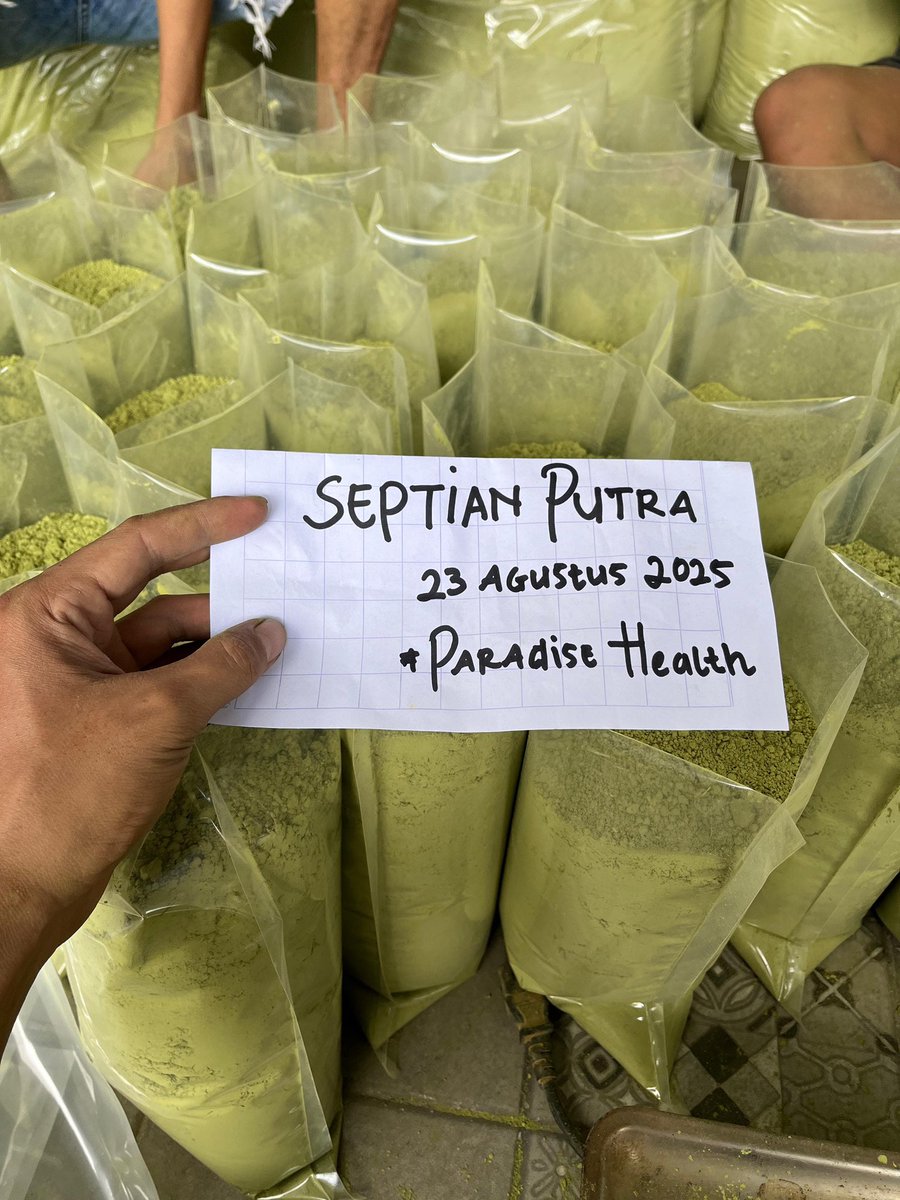 SEPTiAN PUTRA
23 AGUSTUS 2025
* PARAdiSE HEAlth